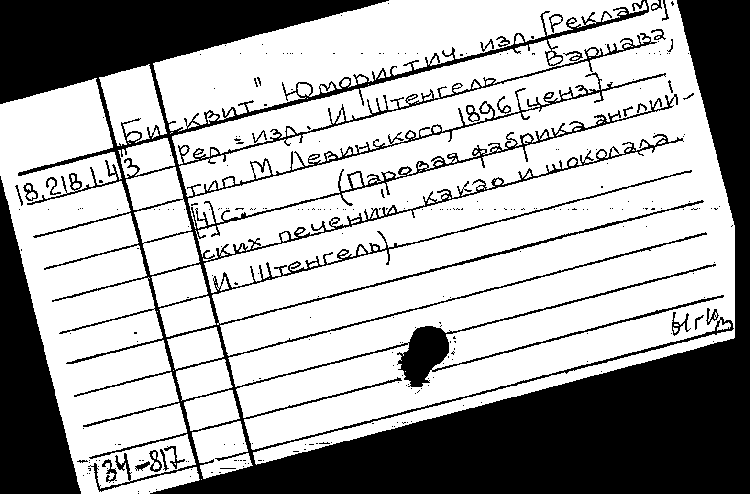 „Бисквит". Юмористич. изд. [Реклама].
18.218.1.43 Ред.-изд. И. Штенгель. Варшава,
тип. М. Левинского, 1896 [ценз.].
[4] с. (Паровая фабрика англий-
ских печений, какао и шоколада
И. Штенгель).
134-817